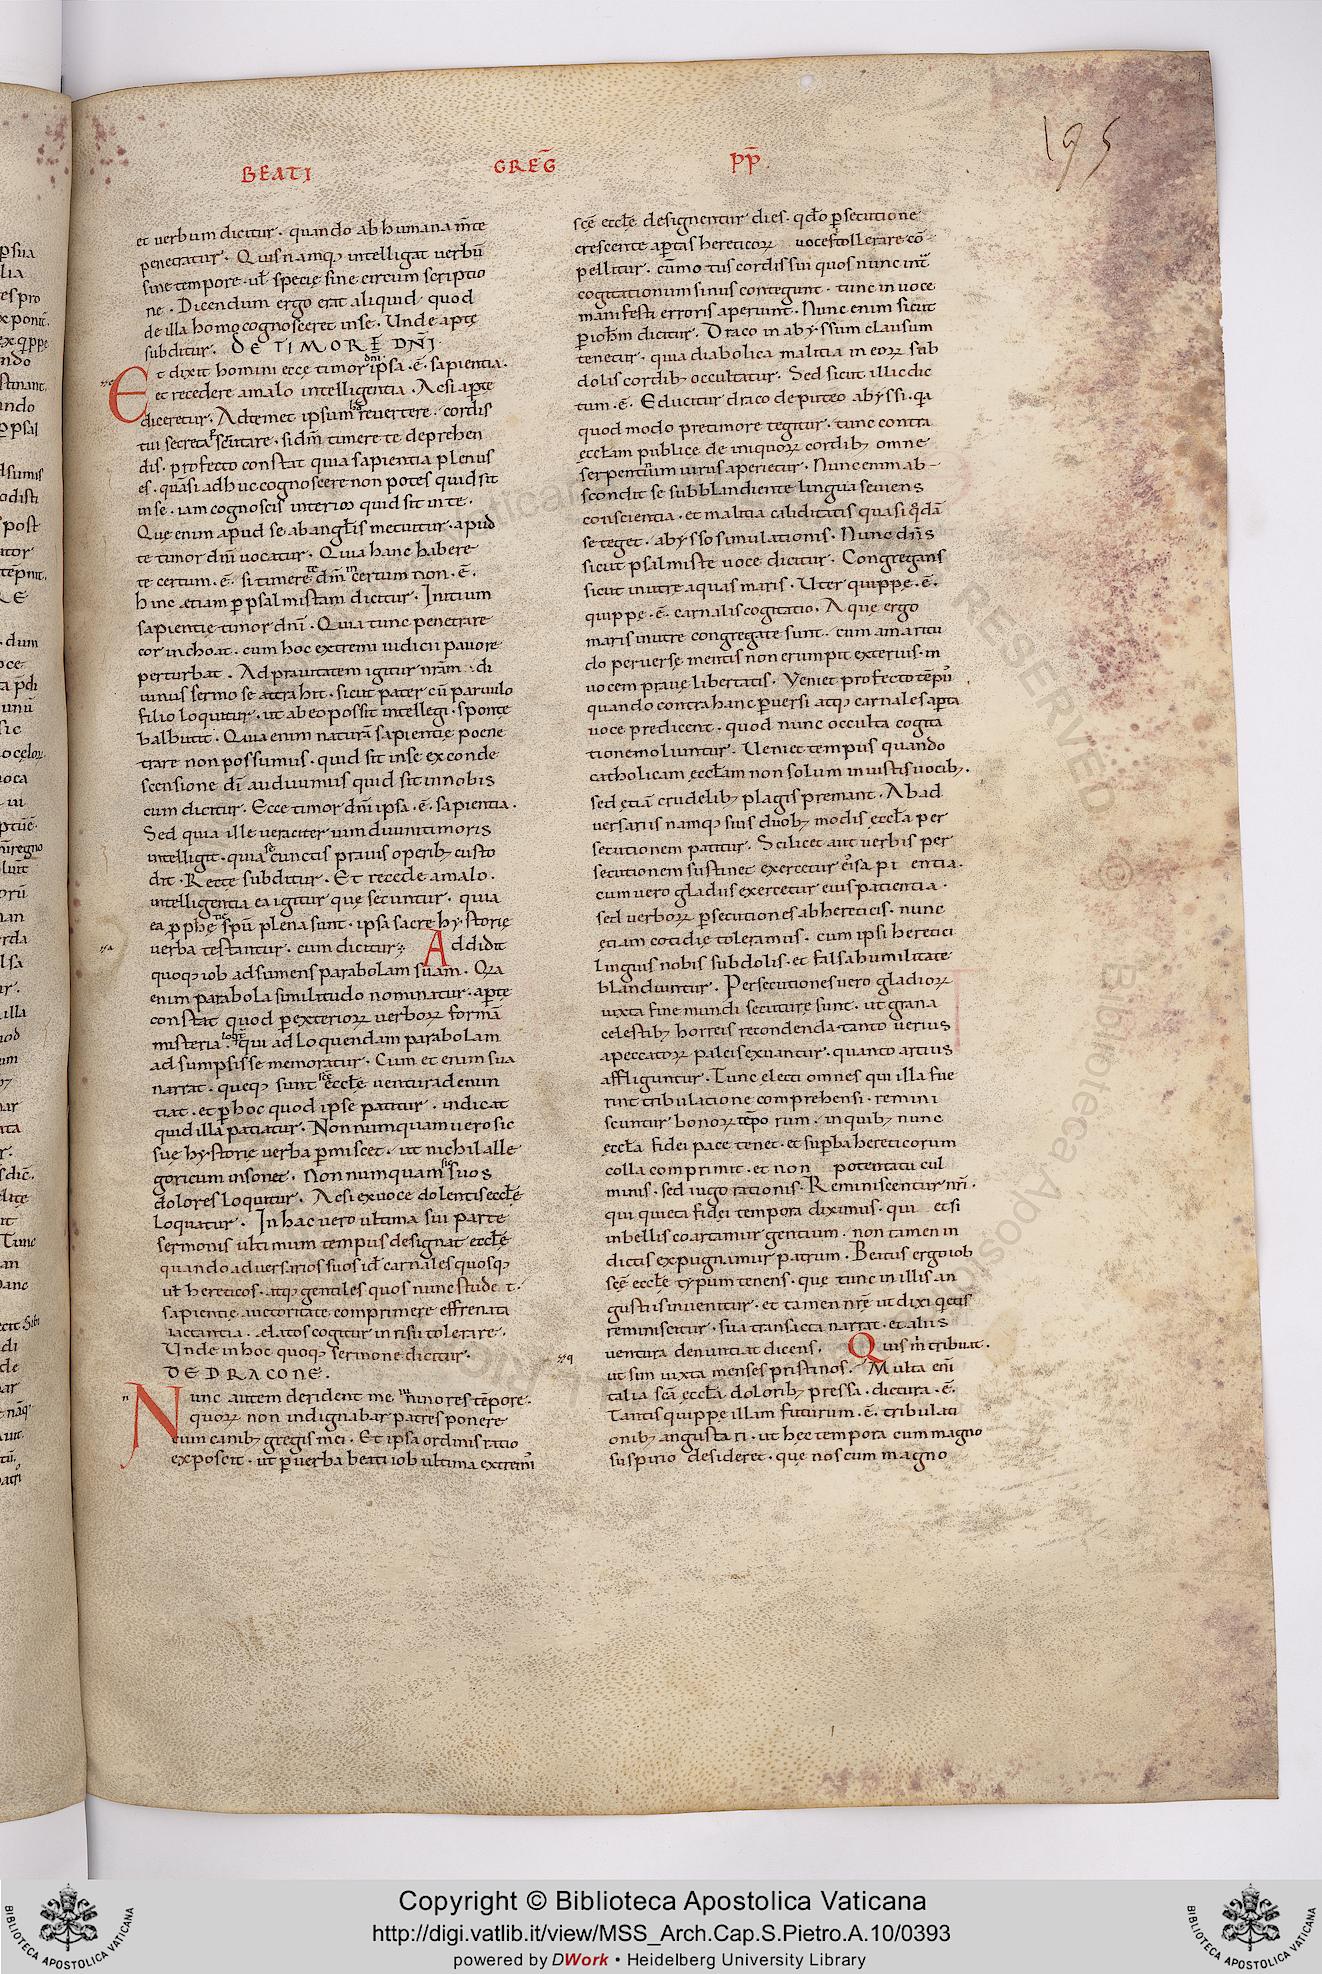 195
BEATI GREḠ PP̄
et verbum dicitur · quando ab humana m̄te
penetratur · Quis namq; intelligat verbū
sine tempore · ul̄ specie sine circum scriptio
ne · Dicendum ergo erat aliquid · quod
de illa homo cognosceret in se · Unde apte
subditur · DE TIMORE DN̄I ·
Et dixit homini ecce timor dn̄i ipsa · ē · sapientia ·
et recedere a malo intelligentia · Ac si apte
diceretur · Ad temet ipsum revertere · cordis
tui secreta scrutare · si dm̄ timere te deprehen
dis · profecto constat quia sapientia plenus
es · quasi adhuc cognoscere non potes quid sit
in se · iam cognoscis interius quid sit in te ·
Que enim apud se ab angl̄is metuitur · apud
te timor dn̄i vocatur · Quia hanc habere
te certum · ē · si timere te dm̄ incertum non · ē ·
hinc etiam p psalmistam dicitur · Initium
sapientie timor dn̄i · Quia tunc penetrare
cor inchoat · cum hoc extremi iudicii pavore
perturbat · Ad pravitatem igitur nr̄am · di
vinus sermo se attrahit · sicut pater cū parvulo
filio loquitur · ut ab eo possit intellegi · sponte
balbutit · Quia enim naturā sapientie poene
trare non possumus · quid sit in se ex conde
scensione dī audivimus quid sit in nobis
cum dicitur · Ecce timor dn̄i ipsa · ē · sapientia ·
Sed quia ille veraciter vim divini timoris
intelligit · quia se cunctis pravis operib; custo
dit · Recte subditur · Et recede a malo ·
intelligentia ea igitur que secuntur · quia
ea pphetie sp̄u plena sunt · ipsa sacre hystorie
verba testantur · cum dicitur · Addidit
quoq; iob adsumens parabolam suam · Q̄a
enim parabola similitudo nominatur · apte
constat quod p exterioꝝ verboꝝ formā
misteria loqr̄et qui ad loquendam parabolam
adsumpsisse memoratur · Cum et enim sua
narrat · queq; sunt sc̄e eccl̄e ventura denun
tiat · et p hoc quod ipse patitur · indicat
quid illa patiatur · Non numquam vero sic
sue hystorie verba pmiscet · ut nichil alle
goricum insonet · Non numquam sic suos
dolores loquitur · Ac si ex voce dolentis eccl̄e
loquatur · In hac vero ultima sui parte
sermonis ultimum tempus designat eccl̄e
quando adversarios suos id̄ carnales quosq;
ul̄ hereticos · atq; gentiles quos nunc studet ·
sapientie auctoritate comprimere effrenata
iactantia · elatos cogitur in risu tolerare ·
Unde in hoc quoq; sermone dicitur ·
DE DRACONE ·
Nunc autem derident me iuniores tēpore ·
quoꝝ non indignabar patres ponere
cum canib; gregis mei · Et ipsa ordinis ratio
exposcit · ut p verba beati iob ultima extremi
sc̄e eccl̄e designentur dies · qdo psecutione
crescente aptas hereticoꝝ voces tollerare cō
pellitur · cū motus cordis sui quos nunc int̄
cogitationum sinus contegunt · tunc in voce
manifesti erroris aperiunt · Nunc enim sicut
p ioh̄m dicitur · Draco in abyssum clausum
tenetur · quia diabolica malitia in eoꝝ sub
dolis cordib; occultatur · Sed sicut illic dic
tum · ē · Educitur draco de puteo abyssi · q̄a
quod modo pre timore tegitur · tunc contra
eccl̄am publice de iniquoꝝ cordib; omne
serpentinum virus aperietur · Nunc enim ab
scondit se sub blandiente lingua seviens
conscientia · et malitia caliditatis quasi qdā
se teget · abysso simulationis · Nunc dn̄s
sicut psalmiste voce dicitur · Congregans
sicut in utre aquas maris · Uter quippe · ē ·
quippe · ē · carnalis cogitatio · Aque ergo
maris in utre congregate sunt · cum amaritu
do perverse mentis non erumpit exterius · in
vocem prave libertatis · Veniet profecto tēpus ·
quando contra hanc pversi atq; carnales apta
voce predicent · quod nunc occulta cogita
tione moliuntur · Veniet tempus quando
catholicam eccl̄am non solum iniustis vocib; ·
sed etiā crudelib; plagis premant · Ab ad
versariis namq; suis duob; modis eccl̄a per
secutionem patitur · Scilicet aut verbis per
secutionem sustinet exercetur ei sapientia ·
cum vero gladiis exercetur eius patientia ·
sed verboꝝ psecutiones ab hereticis · nunc
etiam cotidie toleramus · cum ipsi heretici
linguis nobis subdolis · et falsa humilitate
blandiuntur · Persecutiones vero gladioꝝ
iuxta fine mundi secuture sunt · ut grana
celestib; horreis recondenda · tanto verius
a peccatoꝝ paleis exuantur · quanto artius
affliguntur · Tunc electi omnes qui illa fue
rint tribulatione comprehensi · remini
scuntur honoꝝ tēporum · in quib; nunc
eccl̄a fidei pace tenet · et supba hereticorum
colla comprimit · et non potentatu cul
minis · sed iugo rationis · Reminiscentur nr̄i ·
qui quieta fidei tempora diximus · qui etsi
in bellis coartamur gentium · non tamen in
dictis expugnamur patrum · Beatus ergo iob
sc̄e eccl̄e typum tenens · que tunc in illis an
gustiis invenitur · et tamen nr̄e ut dixi qetis
reminiscitur · sua transacta narrat · et aliis
ventura denuntiat dicens · Quis m̄ tribuat ·
ut sim iuxta menses pristinos · Multa eni
talia sc̄a eccl̄a dolorib; pressa · dictura · ē ·
Tantis quippe illam futurum · ē · tribulati
onib; angustari · ut hec tempora cum magno
suspirio desideret · que nos cum magno
Copyright © Biblioteca Apostolica Vaticana
http://digi.vatlib.it/view/MSS_Arch.Cap.S.Pietro.A.10/0393
powered by DWork • Heidelberg University Library
BIBLIOTECA APOSTOLICA VATICANA
BIBLIOTECA APOSTOLICA VATICANA